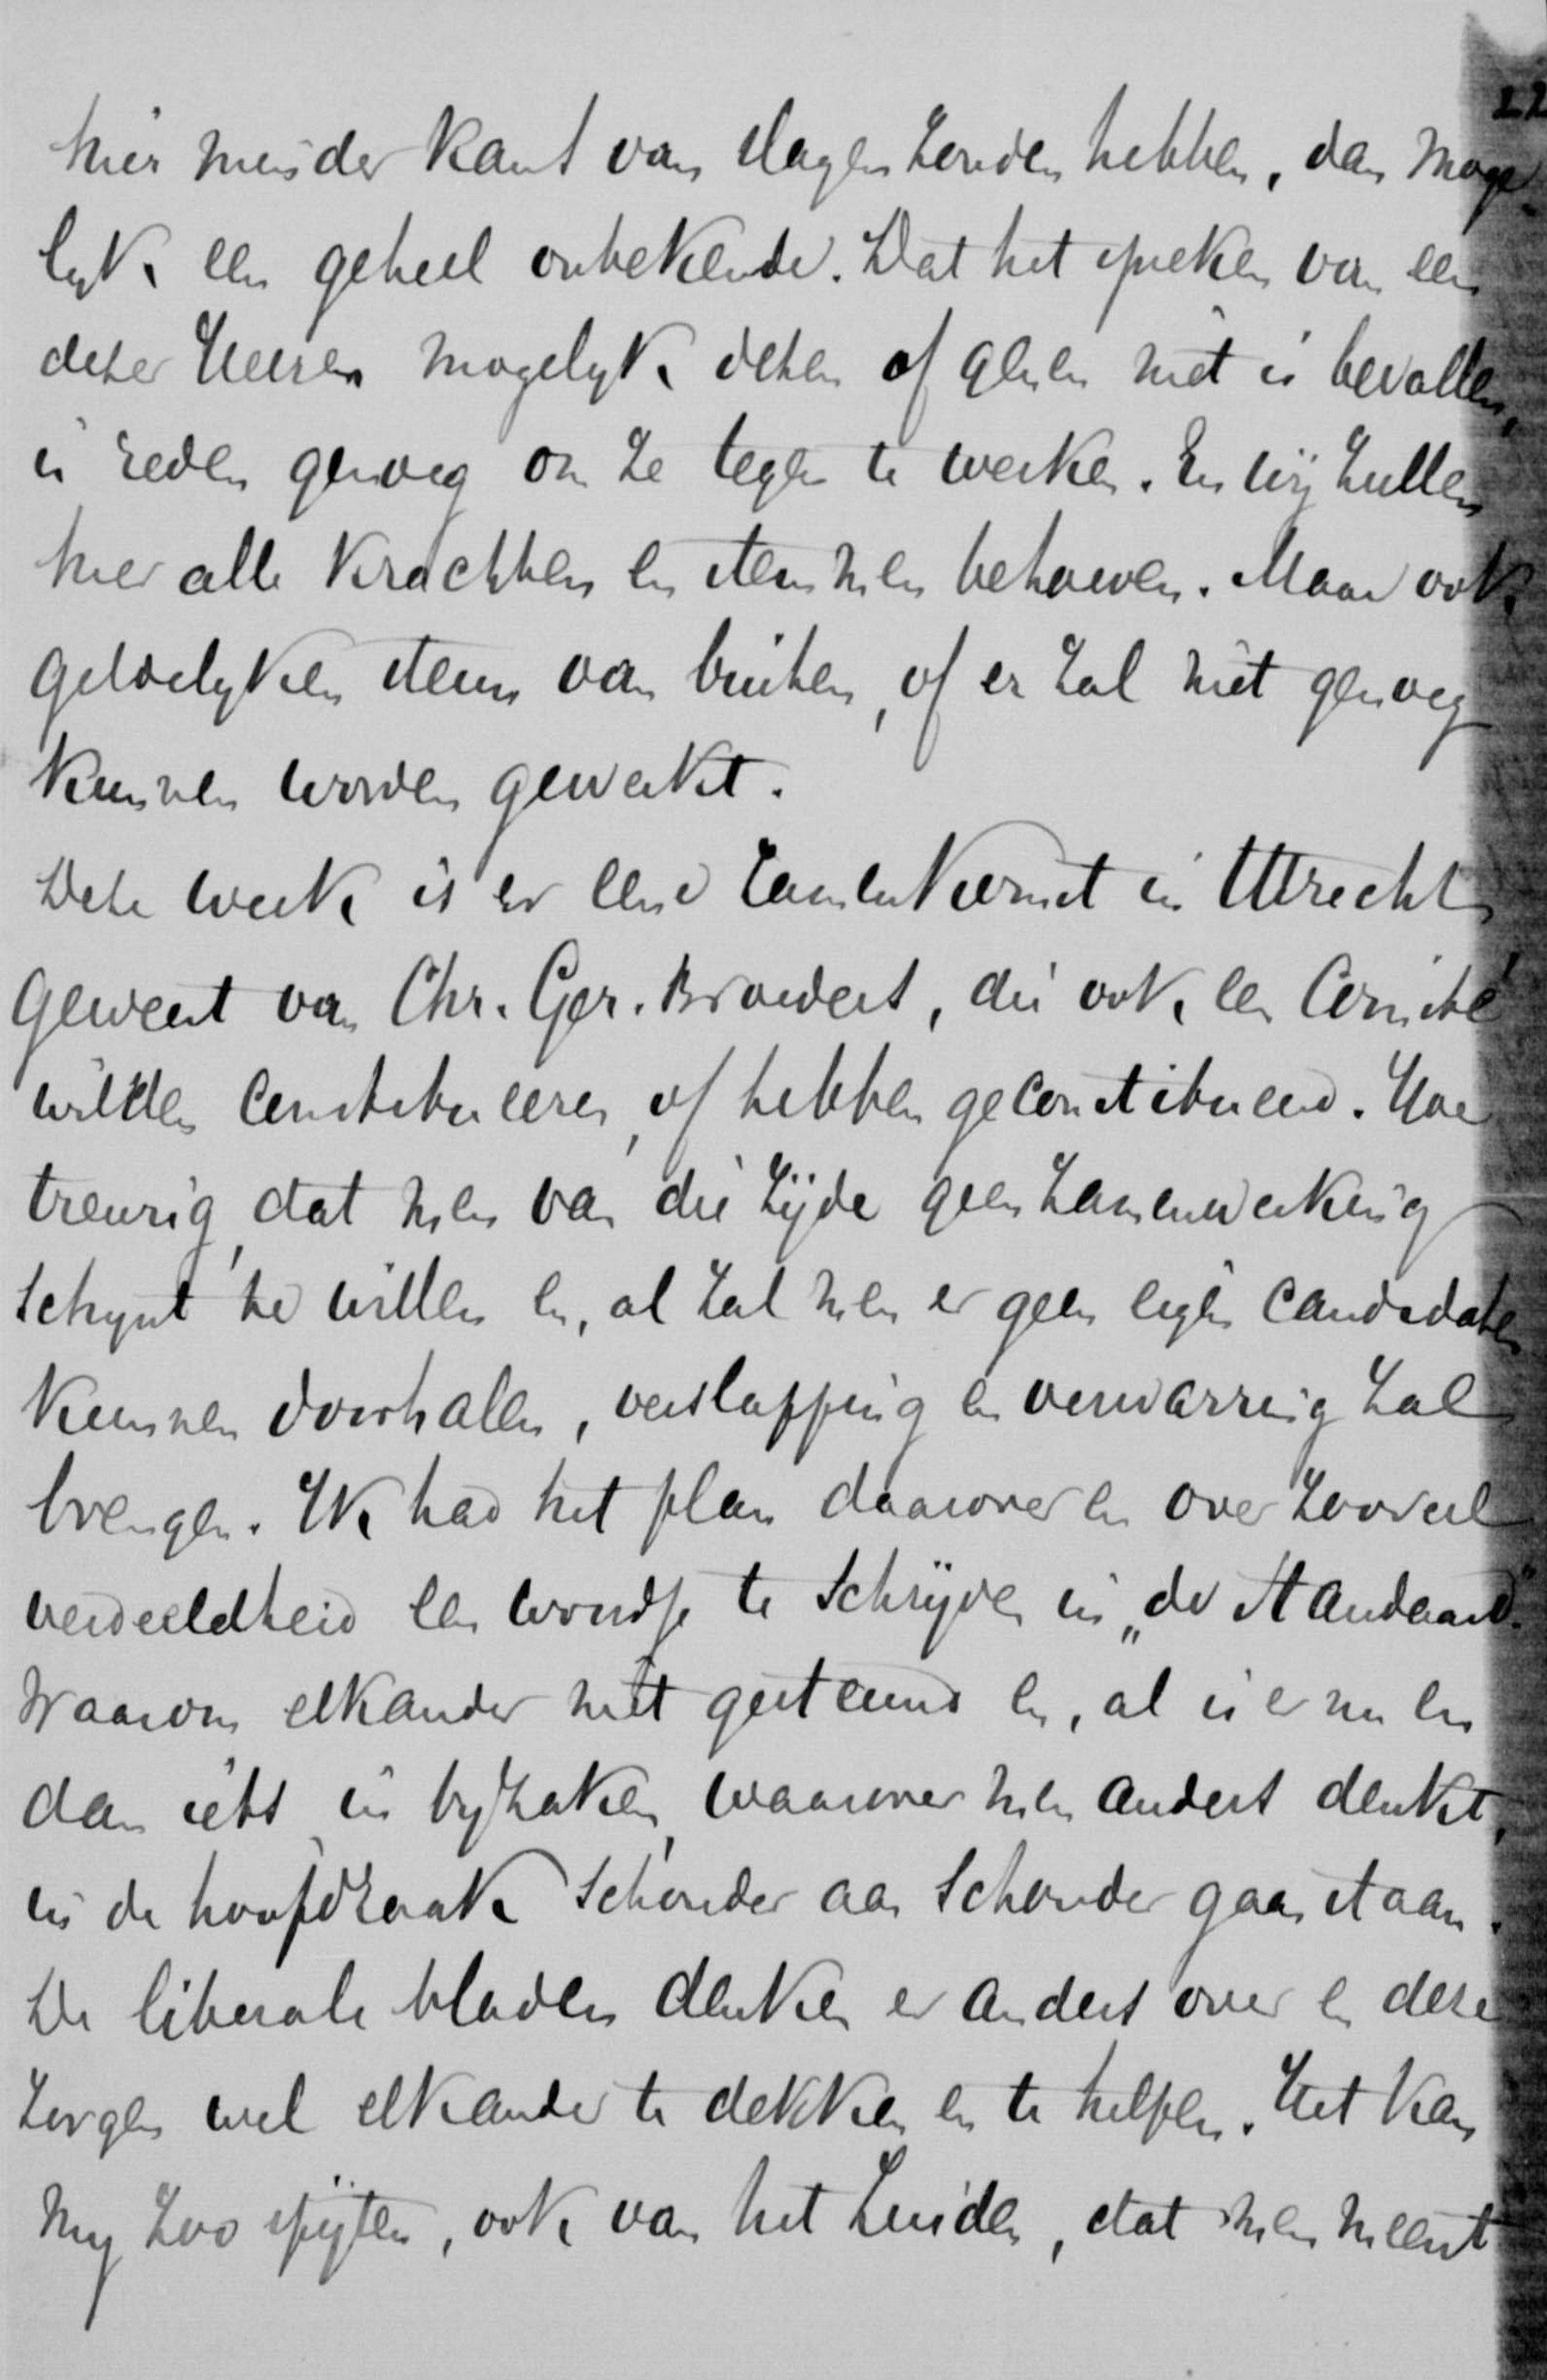 22
hier minder kans van slagen zouden hebben, dan moge-
lyk een geheel onbekende. Dat het spreken van een
dezer Heeren mogelyk dezen of genen niet is bevallen,
is reden genoeg om ze tegen te werken. En wij zullen
hier alle krachten en stemmen behoeven. Maar ook
geldelyken steun van buiten, of er zal niet genoeg
kunnen worden gewerkt.
Deze week is er eene zamenkomst in Utrecht
geweest van Chr. Ger. Broeders, die ook een Comité
wilden constitueeren, of hebben geconstitueerd. Hoe
treurig, dat men van die zijde geen zamenwerking
schynt te willen en, al zal men er geen eigen candidaten
kunnen doorhalen, verslapping en verwarring zal
brengen. Ik had het plan daarover en over zooveel
verdeeldheid een woordje te schrijven in „de Standaard".
Waarom elkander niet gesteund en, al is er nu en
dan iets in byzaken, waarover men anders denkt,
in de hoofdzaak schouder aan schouder gaan staan.
De liberale bladen denken er anders over en deze
zorgen wel elkander te dekken en te helpen. Het kan
my zoo spijten, ook van het Zuiden, dat men meent